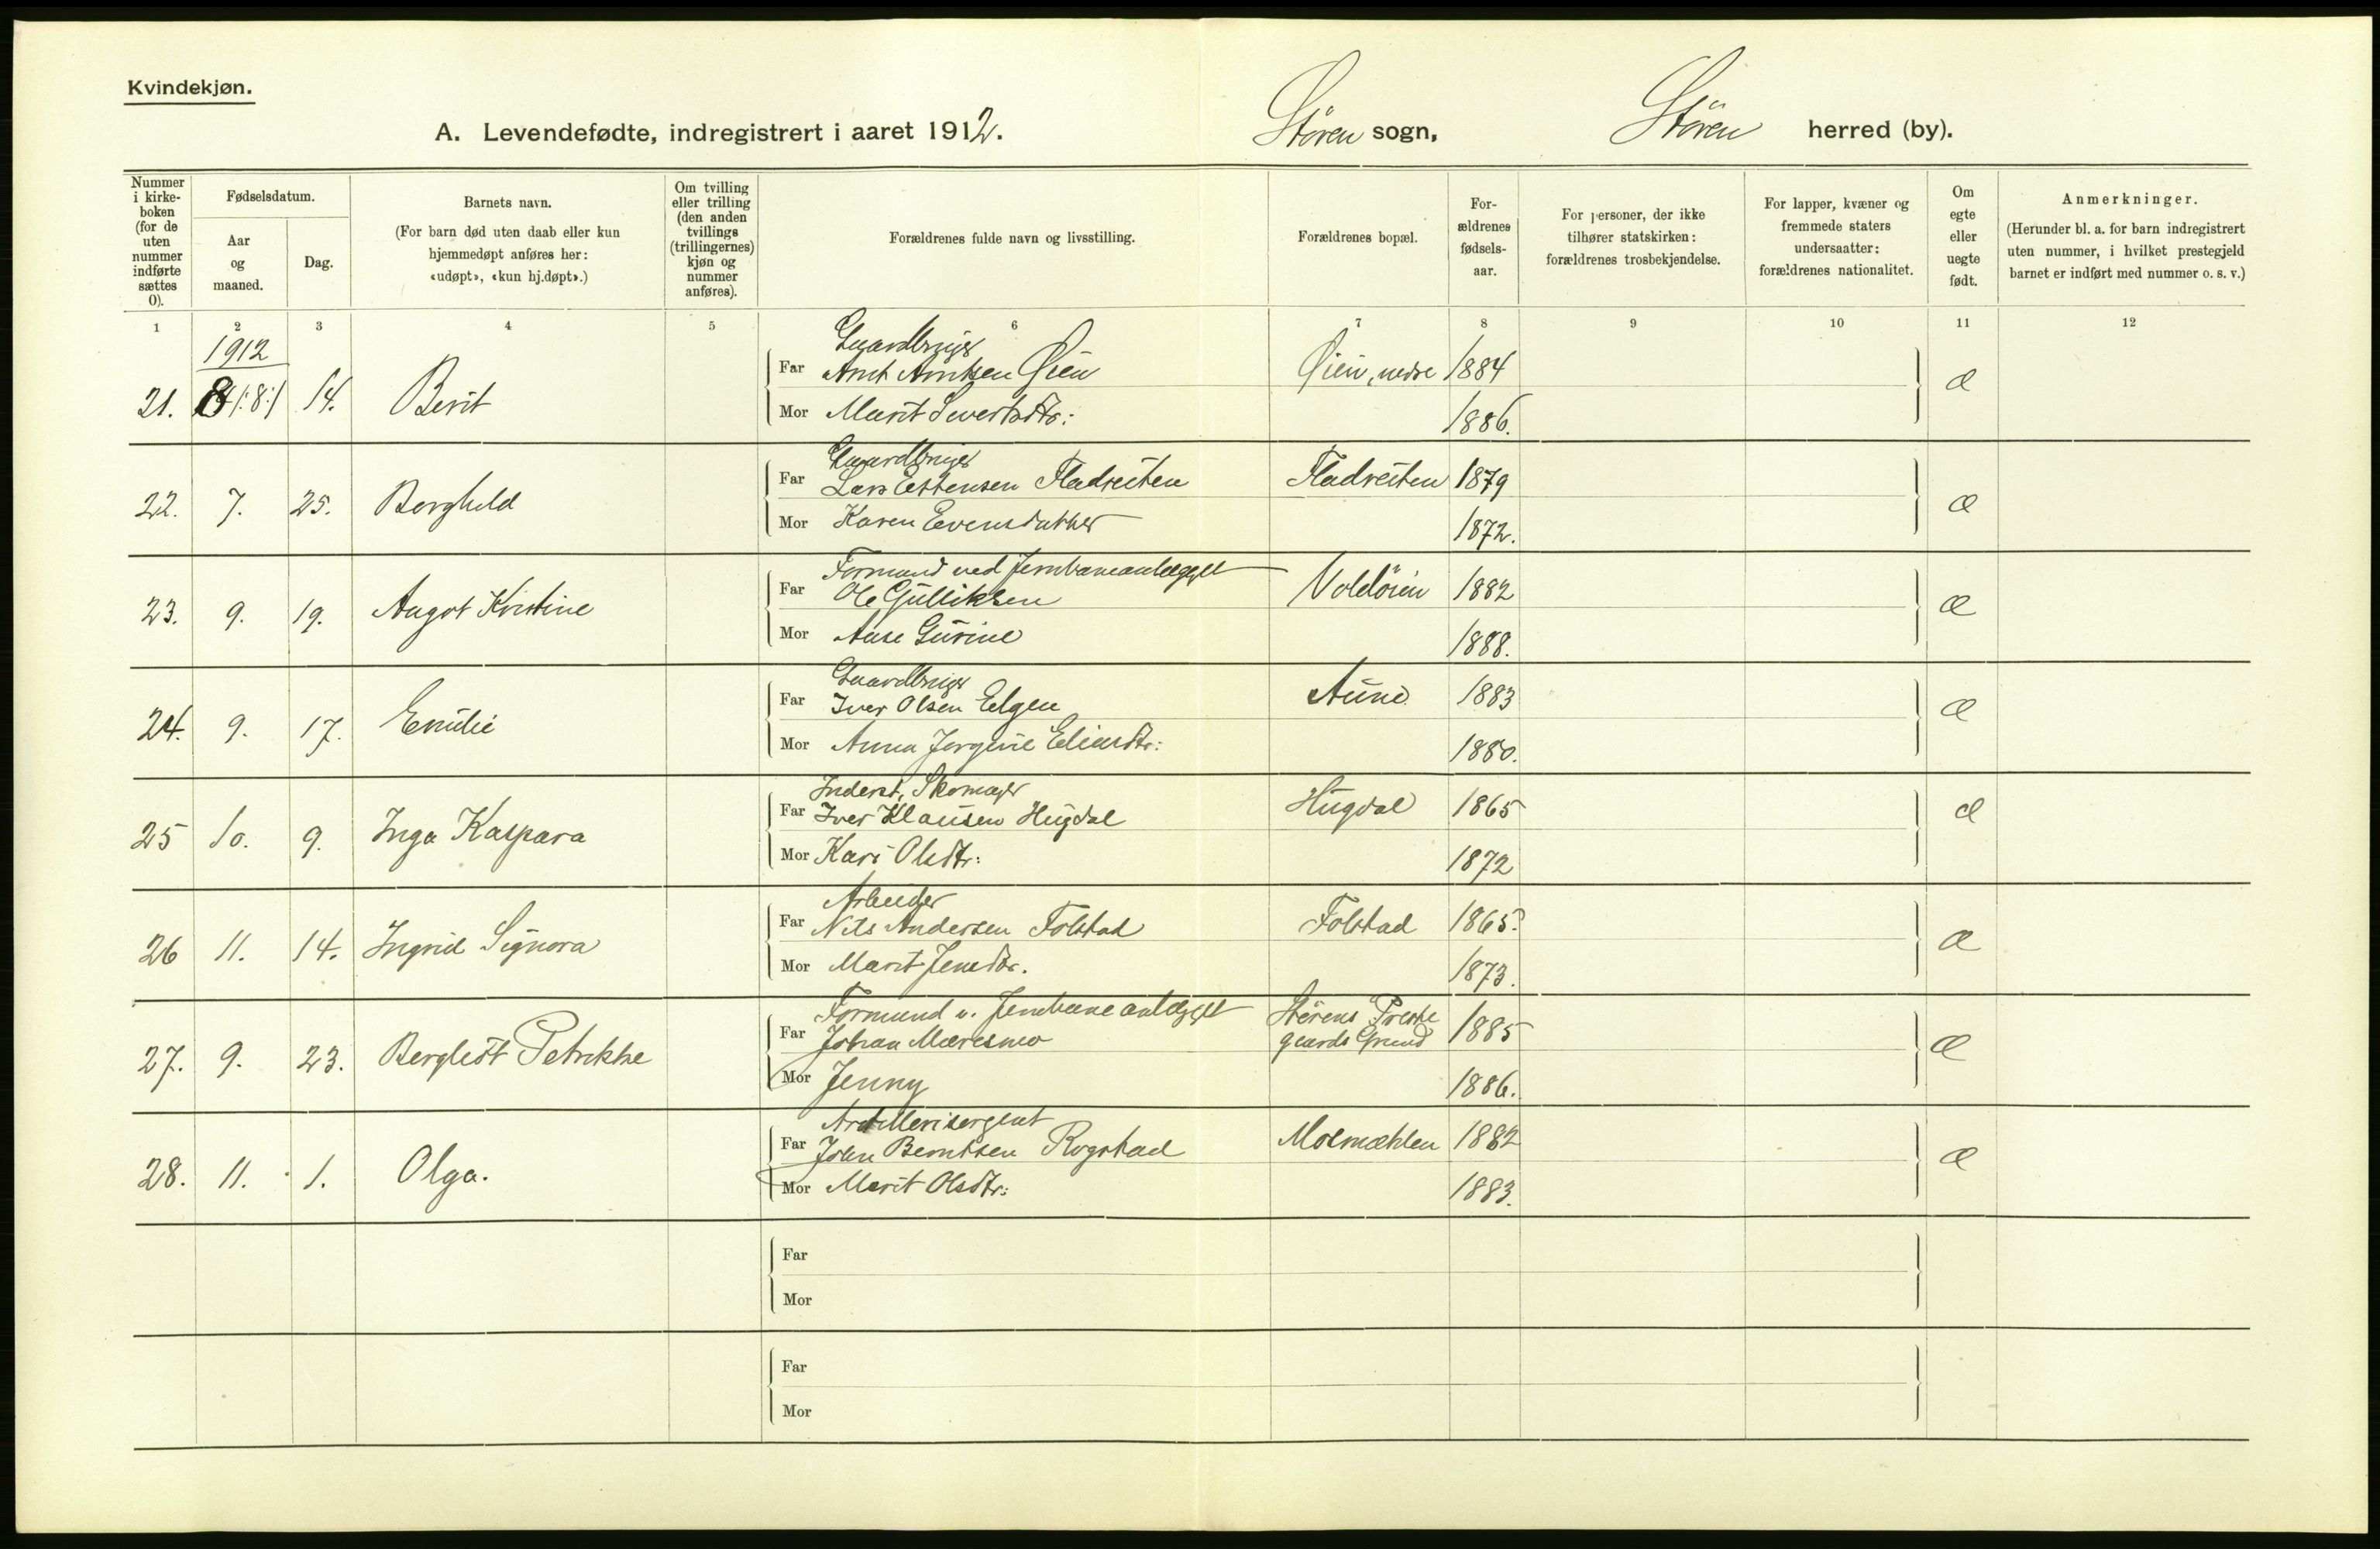 Kvindekjøn.
A. Levendefødte, indregistrert i aaret 1912. Stören sogn, Stören herred (by).
Nummer i kirke-boken (for de uten nummer indførte sættes 0).
Fødselsdatum.
Aar og maaned.
Dag.
Barnets navn.
(For barn død uten daab eller kun hjemmedøpt anføres her: «udøpt», «kun hj.døpt».)
Om tvilling eller trilling (den anden tvillings (trillingernes) kjøn og nummer anføres).
Forældrenes fulde navn og livsstilling.
Forældrenes bopæl.
For-ældrenes fødsels-aar.
For personer, der ikke tilhører statskirken: forældrenes trosbekjendelse.
For lapper, kvæner og fremmede staters undersaatter: forældrenes nationalitet.
Om egte eller uegte født.
Anmerkninger.
(Herunder bl. a. for barn indregistrert uten nummer, i hvilket prestegjeld barnet er indført med nummer o. s. v.)
1 2 3 4 5 6 7 8 9 10 11 12
1912
Gaardbruger
21. 8 /:8:/ 14. Berit Far Arnt Arntsen Øien Øien, nedre 1884 Æ
Mor Marit Sivertsdtr: 1886.
Gaardbruger
22. 7. 25. Borghild Far Lars Estensen Fladreiten Fladreiten 1879 Æ
Mor Karen Evensdatter 1872.
Formand ved Jernbaneanlægget
23. 9. 19. Aagot Kristine Far Ole Gulliksen Voldöien 1882 Æ
Mor Aase Gurine 1888.
Gaardbruger
24. 9. 17. Emilie Far Iver Olsen Eelgen Aune 1883 Æ
Mor Anna Jorgine Eliasdtr: 1880.
Inderst, Skomager
25 10. 9. Inga Kaspara Far Iver Klausen Hugdal Hugdal 1865 Æ
Mor Kari Olsdtr: 1872
Arbeider
26 11. 14. Ingrid Signora Far Nils Andersen Folstad Folstad 1865. Æ
Mor Marit Jensdtr. 1873.
Formand v. Jernbaneanlægget Störens Preste
27. 9. 23. Bergliot Petrikke Far Johan Møresmo gaards Grund 1885 Æ
Mor Jenny 1886.
Artillerisergent
28. 11. 1. Olga. Far John Berntsen Rogstad Moemæhlen 1882 Æ
Mor Marit Olsdtr: 1883.
Far
Mor
Far
Mor